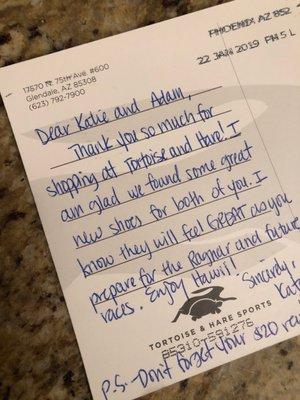 17570 N. 75th Ave. #600
Glendale, AZ 85308
(623) 792-7900
PHOENIX AZ 852
22 JAN 2019 PM 5 L
Dear Katie and Adam,
Thank you so much for
shopping at Tortoise and Hare! I
am glad we found some great
new shoes for both of you. I
know they will feel GREAT as you
prepare for the Ragnar and future
races. Enjoy Hawii!
Sincerely,
Kat
TORTOISE & HARE SPORTS
85310-591276
P.S.- Don't forget your $20 re